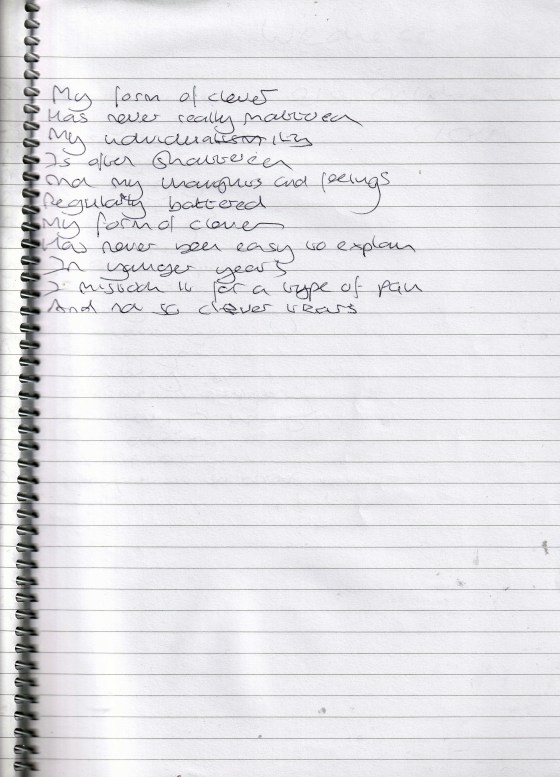 My form of clever
Has never really mattered
My individuality
Is often shattered
And my thoughts and feelings
Regularly battered
My form of clever
Has never been easy to explain
In younger years
I mistook it for a type of pain
And not so clever